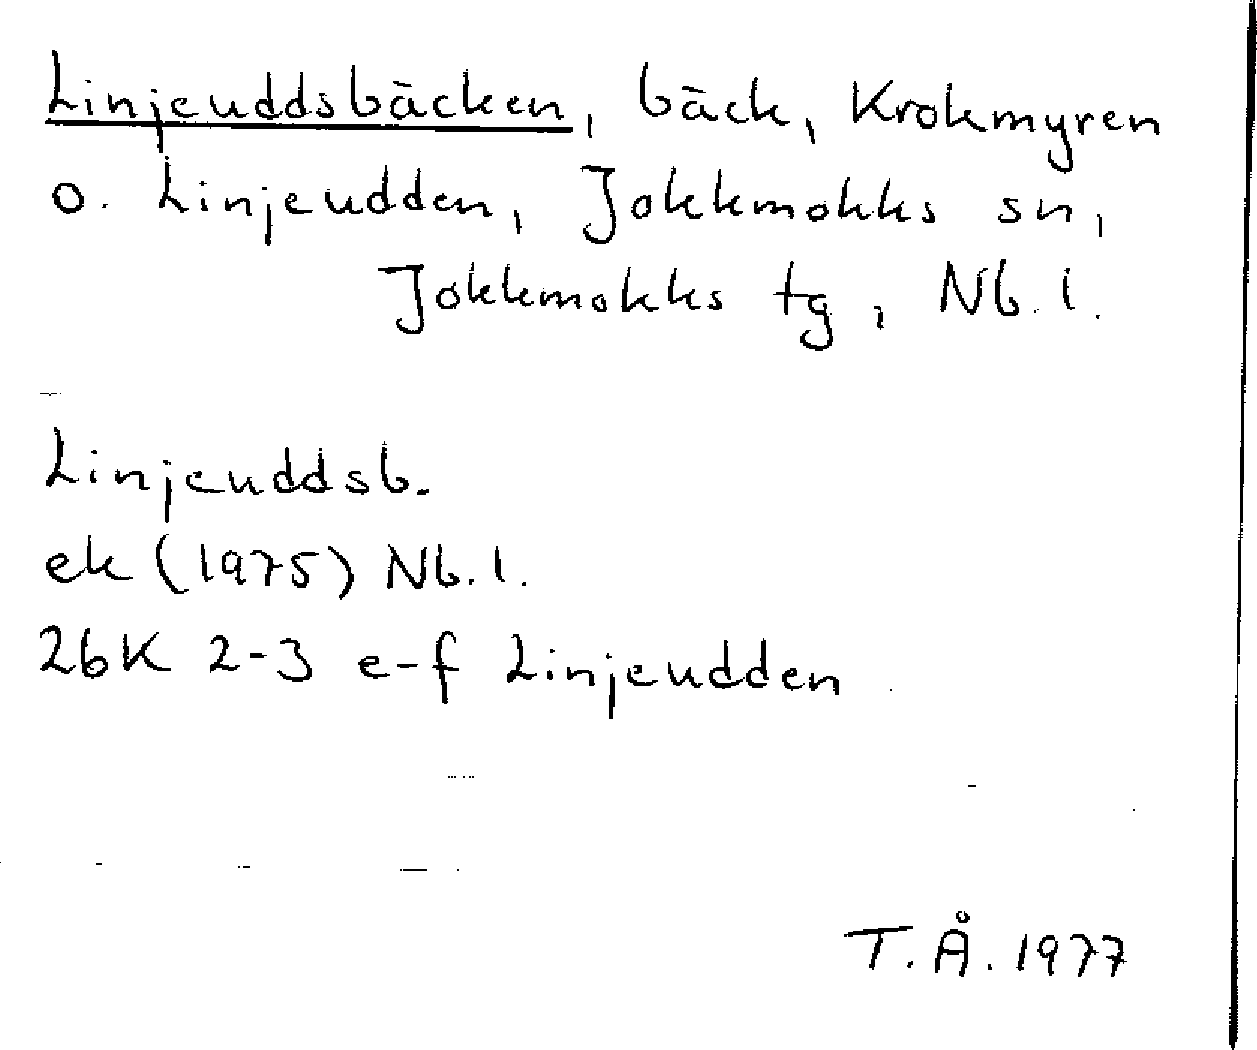 Linjeuddsbäcken, bäck, Krokmyren
o. Linjeudden, Jokkmokks sn,
Jokkmokks tg, Nb. l.
Linjeuddsb.
ek (1975) Nb. l.
26K 2-3 e-f Linjeudden
T. Å. 1977